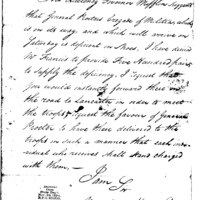 His Excellency Governor Mifflin suggests
that General Proctors Brigade of Militia, which
is on its way, and which will arrive on
Saturday is deficient in Shoes. I have desired
Mr Francis to provide Five Hundred pairs
to supply the deficiency. I request that
you would instantly forward them on
the road to Lancaster in order to meet
the troops & request the favour of General
Proctor to have them delivered to the
troops in such a manner that each
individual who receives shall stand charged
with them.—
I am Sir